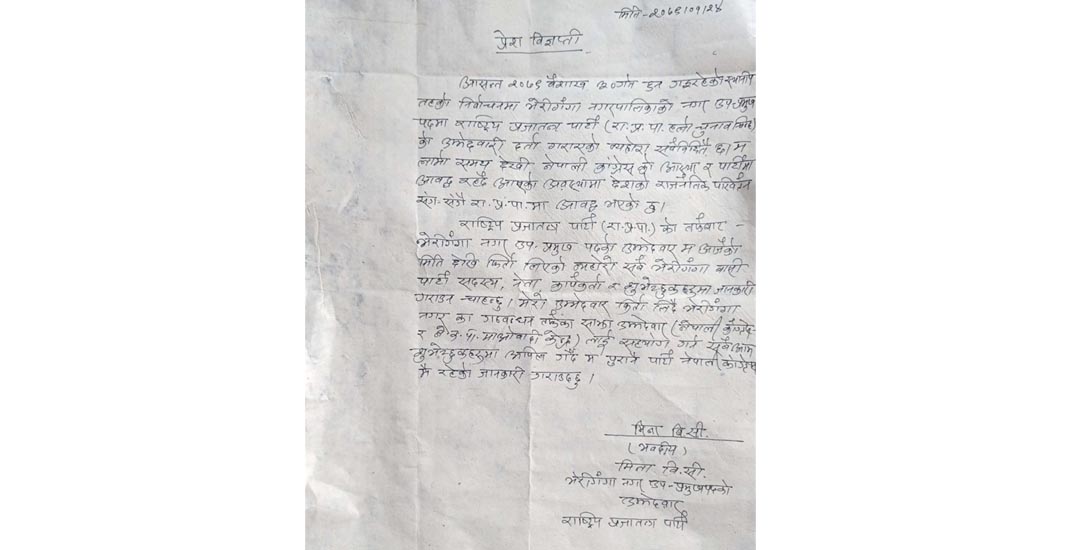 मिति-२०७९।०१।२४
प्रेश विज्ञप्ती
आसन्न २०७९ बैशाख ३०गते हुन गइरहेको स्थानीय
तहको निर्वाचनमा भेरीगंगा नगरपालिकाको नगर उप-प्रमुख
पदमा राष्ट्रिय प्रजातन्त्र पार्टी (रा.प्र.पा. हलो चुनाव चिन्ह)
को उम्मेदवारी दर्ता गराएको व्यहोरा सर्वविदितै छ। म
लामो समय देखी नेपाली कांग्रेस को आस्था र पार्टीमा
आवद्ध रहँदै आएको अवस्थामा देशको राजनितिक परिवर्तन
संग-संगै रा.प्र.पा.मा आवद्ध भएको छु।
राष्ट्रिय प्रजातन्त्र पार्टी (रा.प्र.पा.) को तर्फबाट -
भेरीगंगा नगर उप-प्रमुख पदको उम्मेदवार म आजैको
मिति देखि फिर्ता लिएको ब्यहोरा सर्व भेरीगंगा बासी
पार्टी सदस्य, नेता, कार्यकर्ता र शुभेच्छुकहरुमा जानकारी
गराउन चाहन्छु। मेरो उम्मेदवार फिर्ता लिदै भेरीगंगा
नगर का गठबन्धन तर्फका साझा उम्मेदवार (नेपाली काँग्रेस
र ने.क.पा. माओवादी केन्द्र) लाई सहयोग गर्न सर्वै आम
शुभेच्छुकहरुमा अपिल गर्दै म पुरानै पार्टी नेपाली कांग्रेस
मै रहेको जानकारी गराउदछु।
मिना बि.सी.
(भवदीय)
मिना बि.सी.
भेरीगंगा नगर उप-प्रमुख पदको
उम्मेदवार
राष्ट्रिय प्रजातन्त्र पार्टी